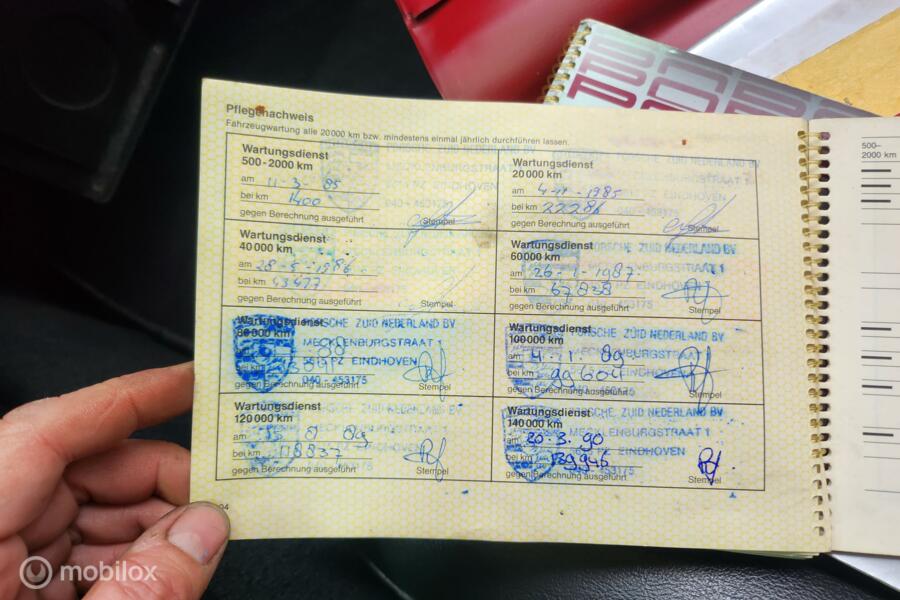 Pflegenachweis
Fahrzeugwartung alle 20 000 km bzw. mindestens einmal jährlich durchführen lassen.
Wartungsdienst
500-2000 km
am 11-3-85
bei km 1400
gegen Berechnung ausgeführt
Stempel
Wartungsdienst
20 000 km
am 4-11-1985
bei km 22286
gegen Berechnung ausgeführt
Stempel
EINDHOVEN
040 - 453175
Wartungsdienst
40 000 km
am 28-5-1986
bei km 43477
gegen Berechnung ausgeführt
Stempel
Wartungsdienst
60 000 km
am 26-1-1987
bei km 67828
gegen Berechnung ausgeführt
Stempel
PORSCHE ZUID NEDERLAND BV
MECKLENBURGSTRAAT 1
Wartungsdienst
80 000 km
am
bei km
gegen Berechnung ausgeführt
Stempel
PORSCHE ZUID NEDERLAND BV
MECKLENBURGSTRAAT 1
EINDHOVEN
040 - 453175
Wartungsdienst
100 000 km
am 4-1-89
bei km 99604
gegen Berechnung ausgeführt
Stempel
PORSCHE ZUID NEDERLAND BV
MECKLENBURGSTRAAT 1
EINDHOVEN
Wartungsdienst
120 000 km
am 15 8 89
bei km 118837
gegen Berechnung ausgeführt
Stempel
Wartungsdienst
140 000 km
am 20-3-90
bei km 139946
gegen Berechnung ausgeführt
Stempel
PORSCHE ZUID NEDERLAND BV
MECKLENBURGSTRAAT 1
EINDHOVEN
500–
2000 km
mobilox